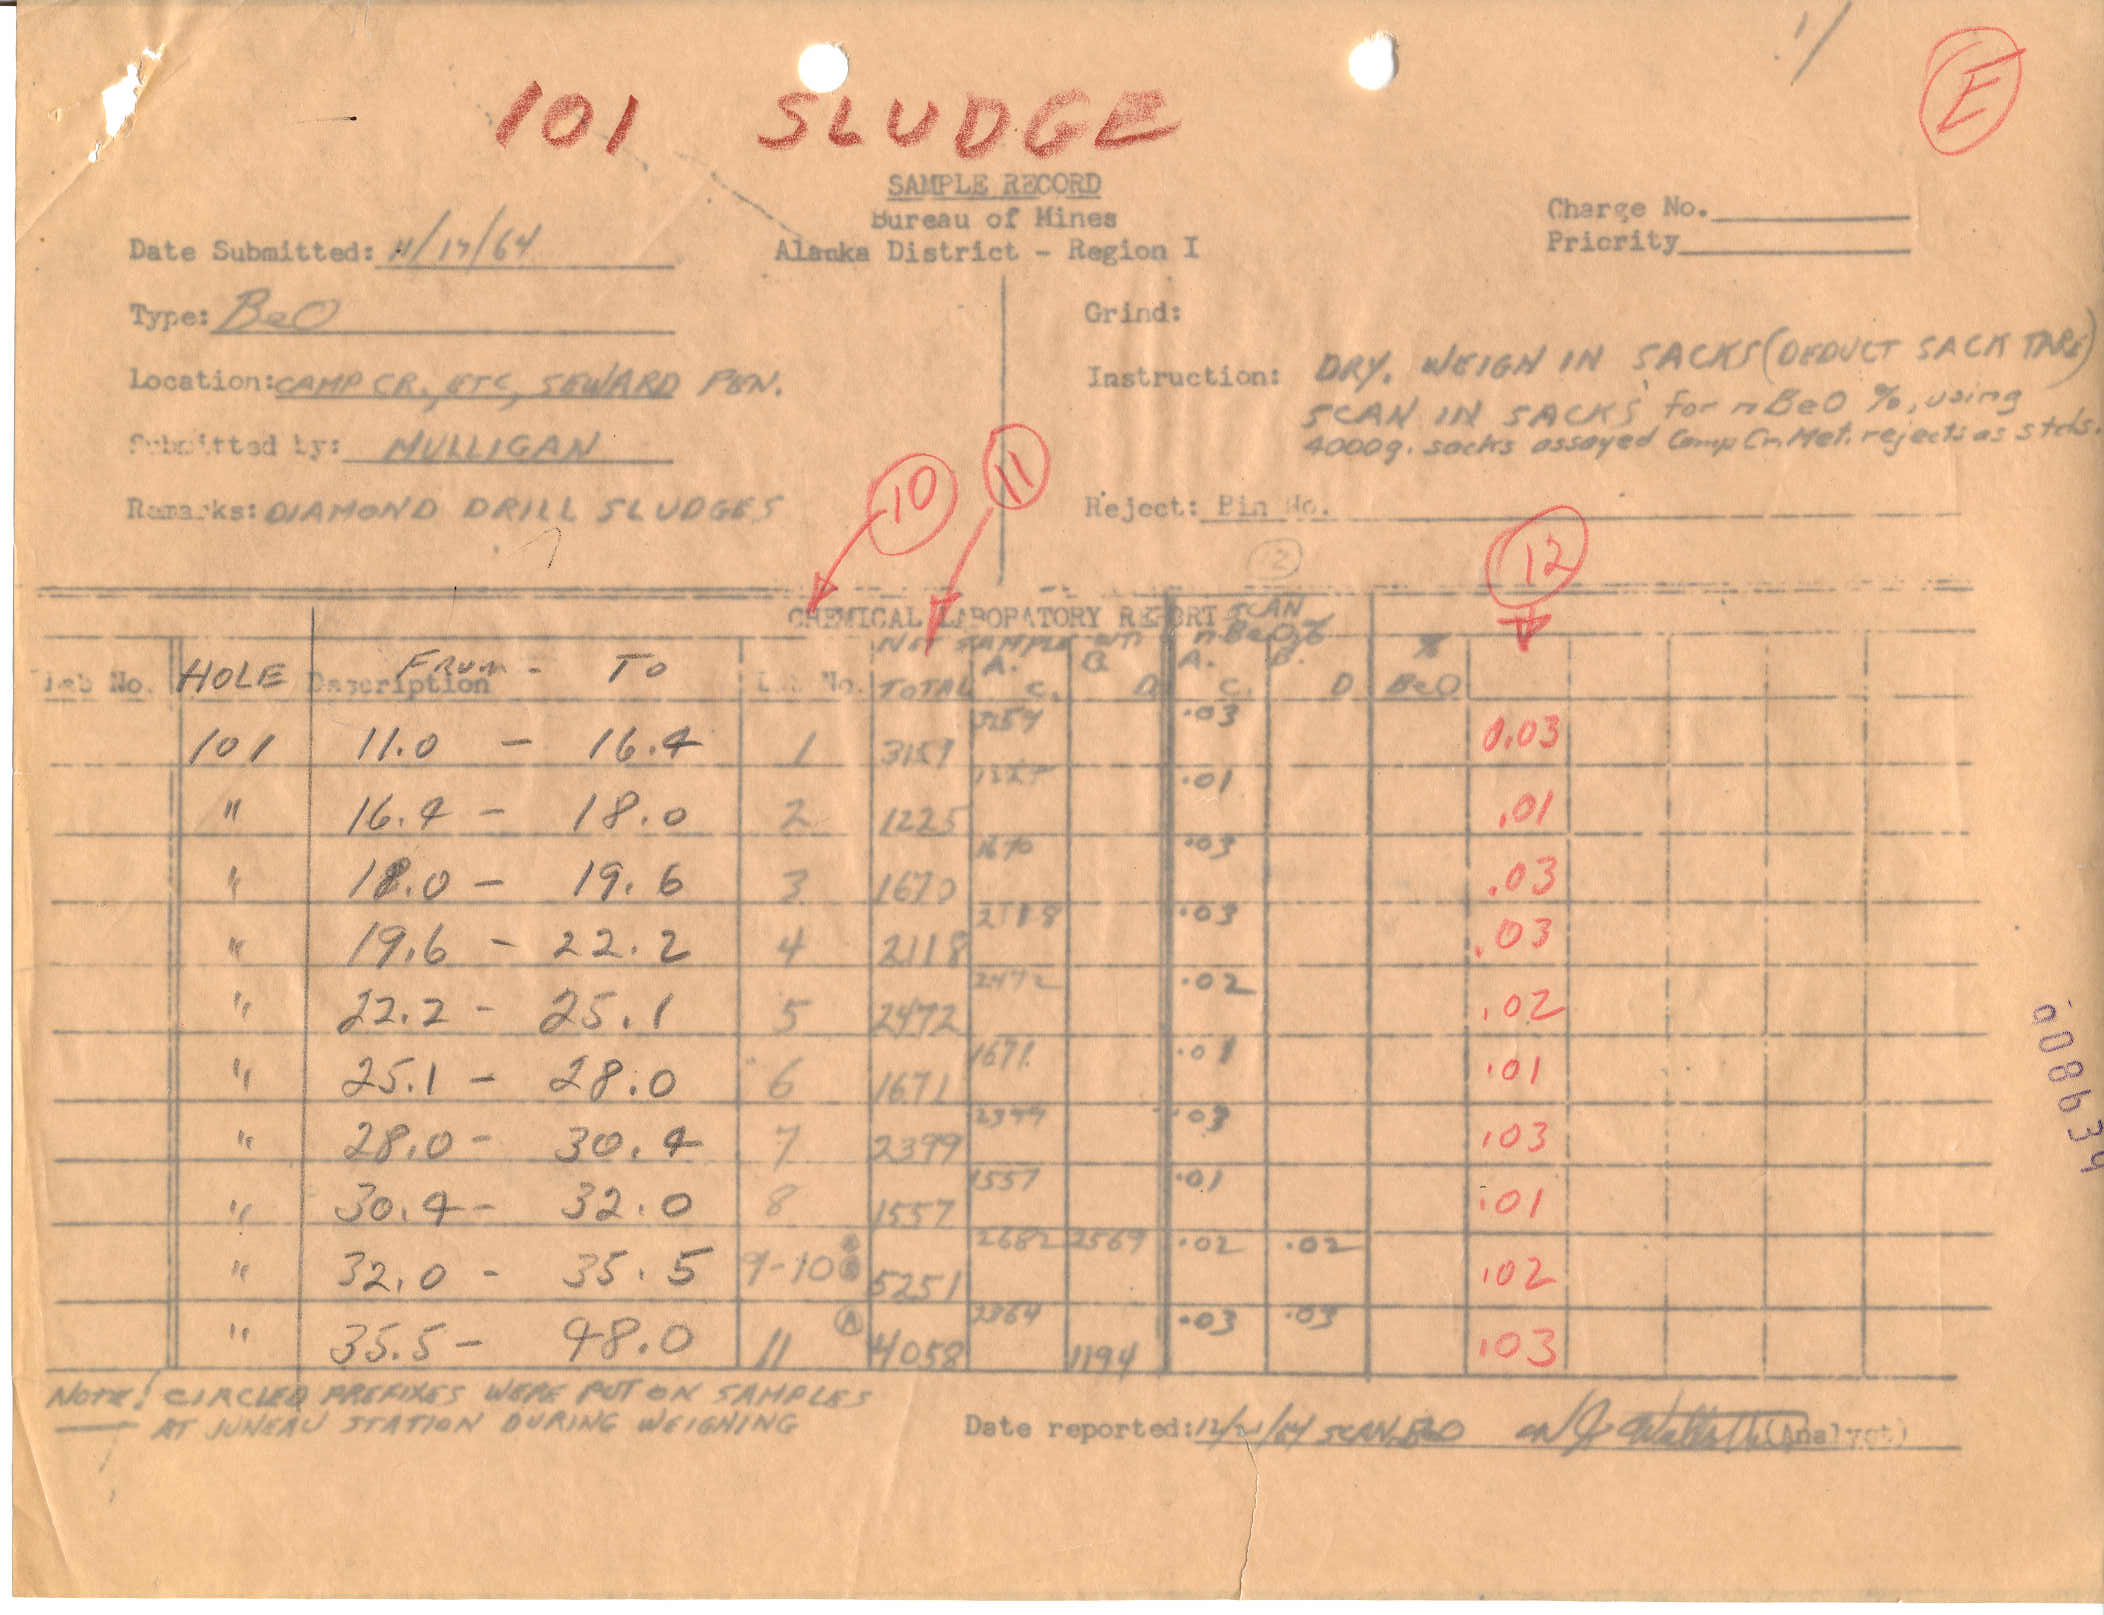 1/
E
101 SLUDGE
SAMPLE RECORD
Bureau of Mines
Alaska District - Region I
Charge No.
Priority
Date Submitted: 11/17/64
Type: BeO
Grind:
Location: CAMP CR., ETC, SEWARD PEN.
Instruction: DRY. WEIGH IN SACKS (DEDUCT SACK TARE)
SCAN IN SACKS for nBeO %, using
4000g. sacks assayed Camp Cr. Met. rejects as stds.
Submitted by: MULLIGAN
Remarks: DIAMOND DRILL SLUDGES
Reject: Bin No.
10 11 12 12
CHEMICAL LABORATORY REPORT SCAN
NET SAMPLE WT. nBeO, %
Lab No. HOLE Description FROM - TO Lab No. TOTAL A. C. B. D. A. C. B. D % BeO
101 11.0 - 16.4 1 3159 3159 .03 0.03
" 16.4 - 18.0 2 1225 .01 .01
" 18.0 - 19.6 3 1670 1670 .03 .03
" 19.6 - 22.2 4 2118 2118 .03 .03
" 22.2 - 25.1 5 2472 2472 .02 .02
" 25.1 - 28.0 6 1671 1671 .01 .01
" 28.0 - 30.4 7 2399 2399 .03 .03
" 30.4 - 32.0 8 1557 1557 .01 .01
" 32.0 - 35.5 9-10 A B 5251 2682 2569 .02 .02 .02
" 35.5 - 48.0 11 A 4058 2864 1194 .03 .03 .03
NOTE! CIRCLED PREFIXES WERE PUT ON SAMPLES
AT JUNEAU STATION DURING WEIGHING
Date reported: 12/21/64 SCAN BeO (Analyst)